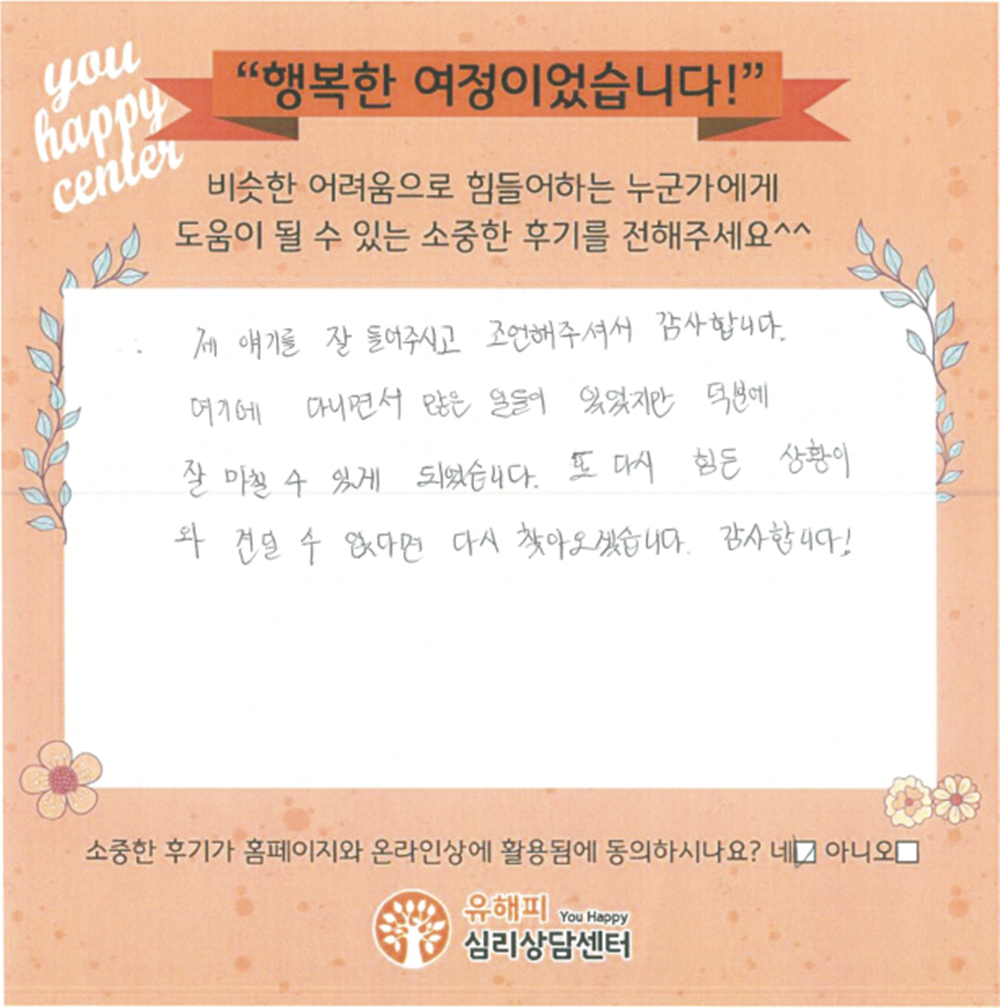 you
happy
center
“행복한 여정이었습니다!”
비슷한 어려움으로 힘들어하는 누군가에게
도움이 될 수 있는 소중한 후기를 전해주세요^^
제 얘기를 잘 들어주시고 조언해주셔서 감사합니다.
여기에 다니면서 많은 일들이 있었지만 덕분에
잘 마칠 수 있게 되었습니다. 또 다시 힘든 상황이
와 견딜 수 없다면 다시 찾아오겠습니다. 감사합니다!
소중한 후기가 홈페이지와 온라인상에 활용됨에 동의하시나요? 네 아니오
유해피 You Happy
심리상담센터